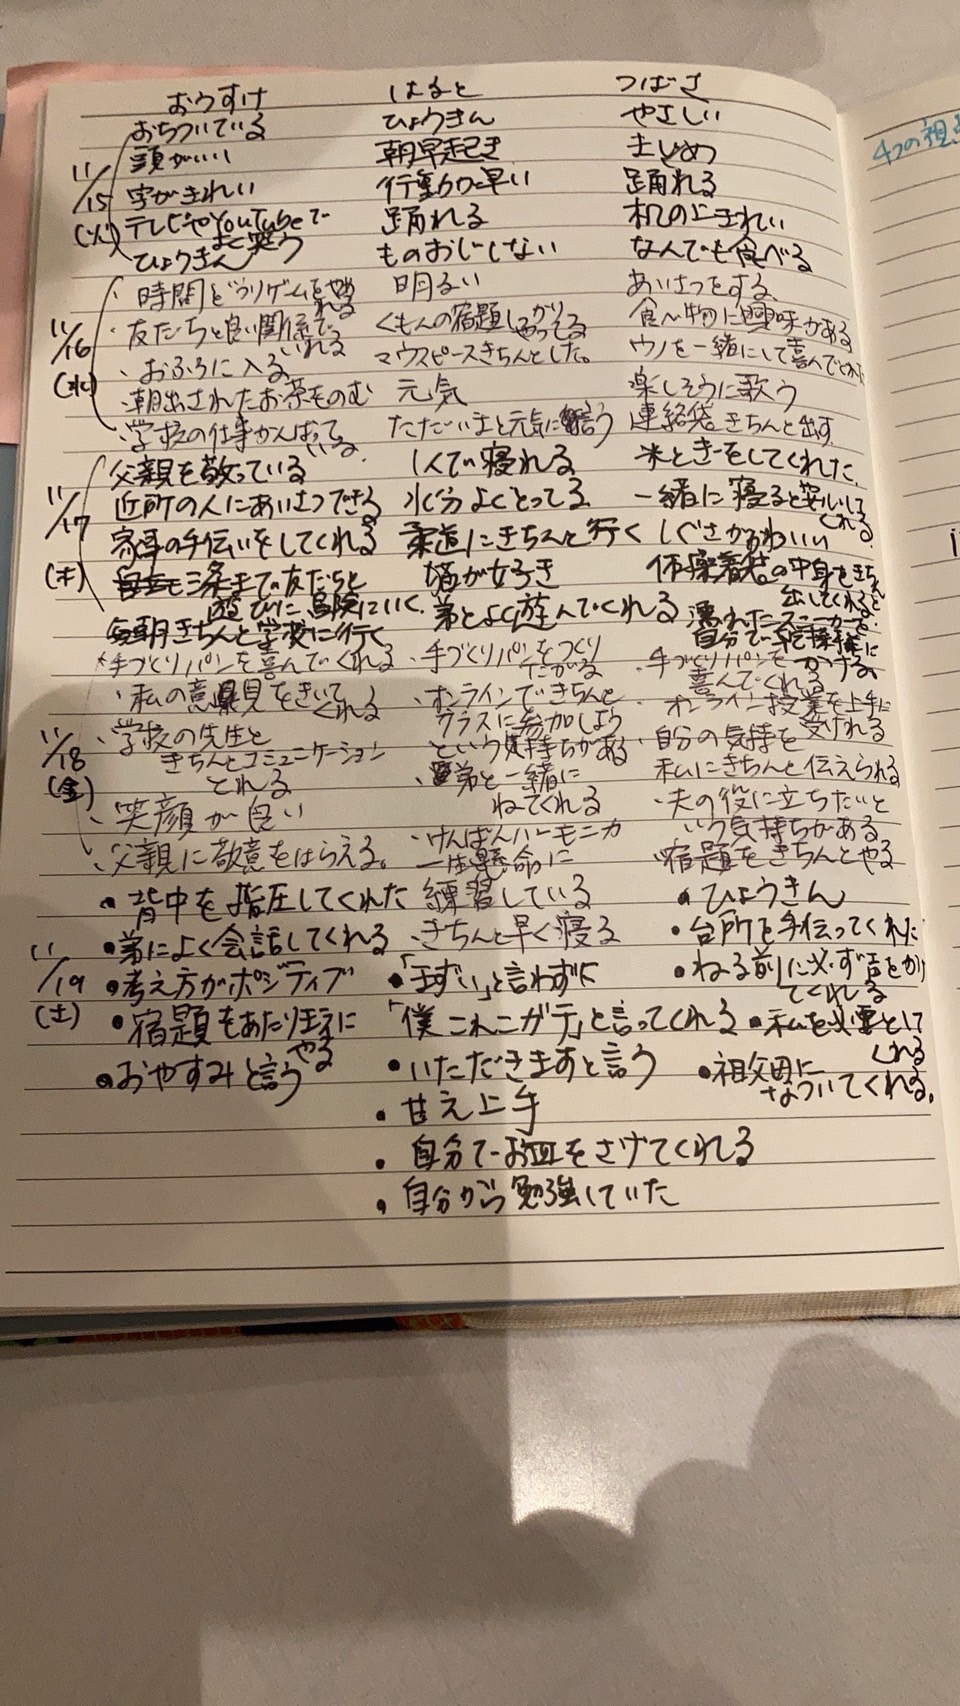 おうすけ はると つばさ
おちついている ひょうきん やさしい
11/15 (火) 頭がいい 朝早起き まじめ
字がきれい 行動力早い 踊れる
テレビやYouTubeで 踊れる 机の上きれい
よく笑う
ひょうきん ものおじしない なんでも食べる
・時間どうりゲームをやめれる 明るい あいさつをする、
11/16 (水) ・友だちと良い関係でいれる くもんの宿題しっかりやってる 食べ物に興味がある
・おふろに入る マウスピースきちんとした。 ウノを一緒にして喜んでくれた
・朝出されたお茶ものむ 元気 楽しそうに歌う
・学校の仕事がんばっている。 ただいまと元気に言う 連絡袋きちんと出す
父親を敬っている 1人で寝れる 米ときをしてくれた、
11/17 (木) 近所の人にあいさつできる 水分よくとってる 一緒に寝ると安心してくれる、
家事の手伝いをしてくれる 柔道にきちんと行く しぐさがかわいい
三条までの友だちと が好き 体操着袋の中身をきちんと
遊びに 行く、 弟とよく遊んでくれる 出してくれる
毎朝きちんと学校に行く 濡れたスニーカーを自分で乾燥機にかける
・手づくりパンを喜んでくれる ・手づくりパンをつくりたがる ・手づくりパンを喜んでくれる
・私の意見をきいてくれる ・オンラインできちんと ・オンライン授業を上手に受けれる
11/18 (金) ・学校の先生と クラスに参加しよう ・自分の気持を
きちんとコミュニケーション という気持ちがある 私にきちんと伝えられる
とれる ・弟と一緒に ・夫の役に立ちたいと
・笑顔が良い ねてくれる いう気持ちがある
・父親に敬意をはらえる。 ・けんばんハーモニカ ・宿題をきちんとやる
一生懸命に
・背中を指圧してくれた 練習している ・ひょうきん
11/19 (土) ・弟によく会話してくれる ・きちんと早く寝る ・台所を手伝ってくれた
・考え方がポジティブ ・「まずい」と言わずに ・ねる前に必ず声をかけてくれる
・宿題もあたりまえにやる 「僕これニガテ」と言ってくれる ・私を必要としてくれる
・おやすみと言う ・いただきますと言う ・祖父母になついてくれる。
・甘え上手
・自分でお皿をさげてくれる
・自分から勉強していた
4つの視点